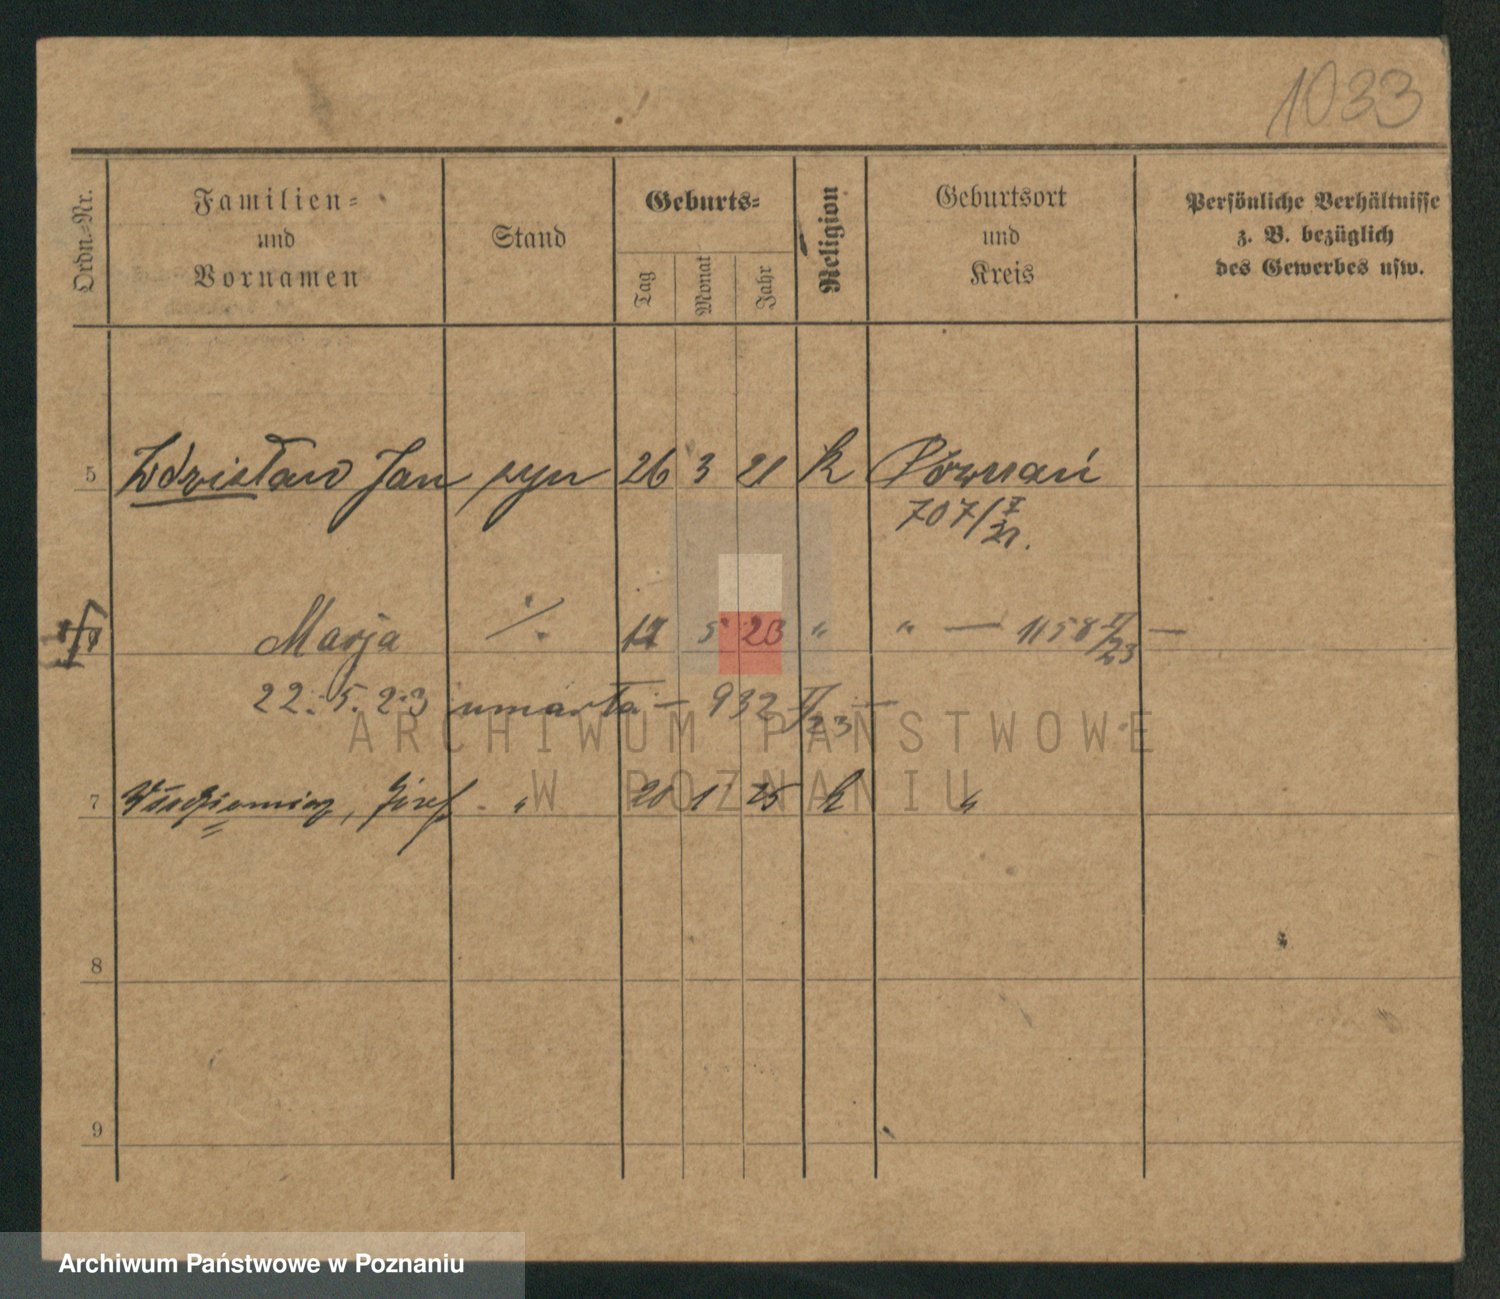 1033
Ordn.-Nr.
Familien-
und
Vornamen
Stand
Geburts-
Tag
Monat
Jahr
Religion
Geburtsort
und
Kreis
Persönliche Verhältnisse
z. B. bezüglich
des Gewerbes usw.
5 Zdzisław Jan syn 26 3 21 k Poznań
707/II
21.
Marja ·/. 5 23 " " — 1158 II/23 —
22. 5. 23 umarła — 932 II/23 —
7 Włodzimierz, Józef " 20 1 25 k "
8
9
ARCHIWUM PAŃSTWOWE
W POZNANIU
Archiwum Państwowe w Poznaniu